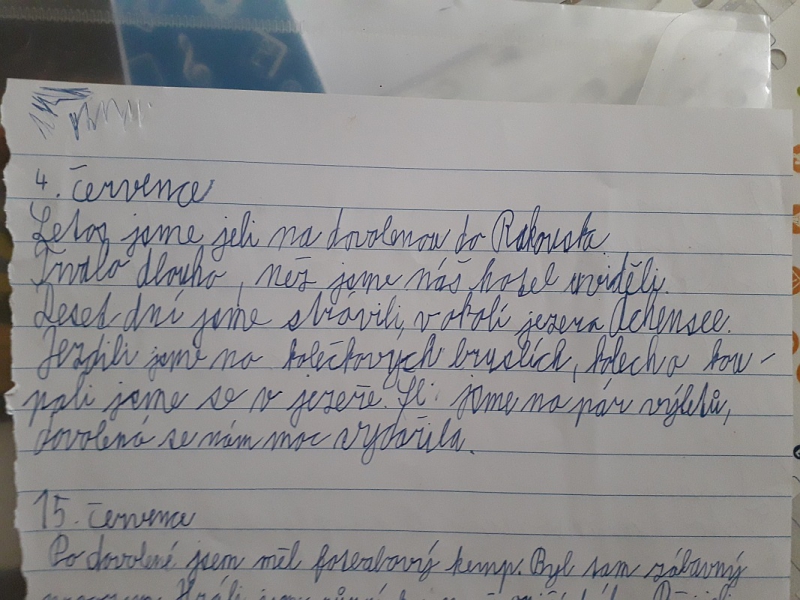 4. července
Letos jsme jeli na dovolenou do Rakouska
Trvalo dlouho, než jsme náš hotel uviděli.
Deset dní jsme strávili, v okolí jezera Achensee.
Jezdili jsme na kolečkových bruslích, kolech a kou-
pali jsme se v jezeře. Šli jsme na pár výletů,
dovolená se nám moc vydařila.
15. července
Po dovolené jsem měl fotbalový kemp. Byl tam zábavný
program. Hráli jsme různé